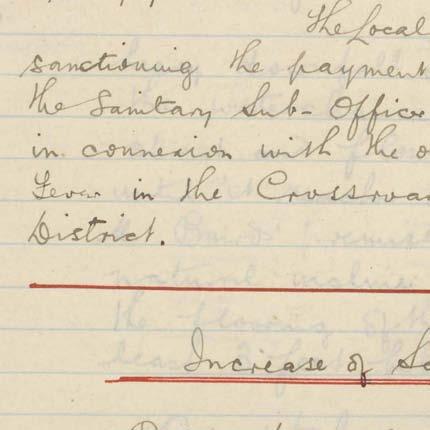 the Local
sanctioning the payment
the Sanitary Sub-Office
in connexion with the
Fever in the Crossroa
District.
Increase of Sa